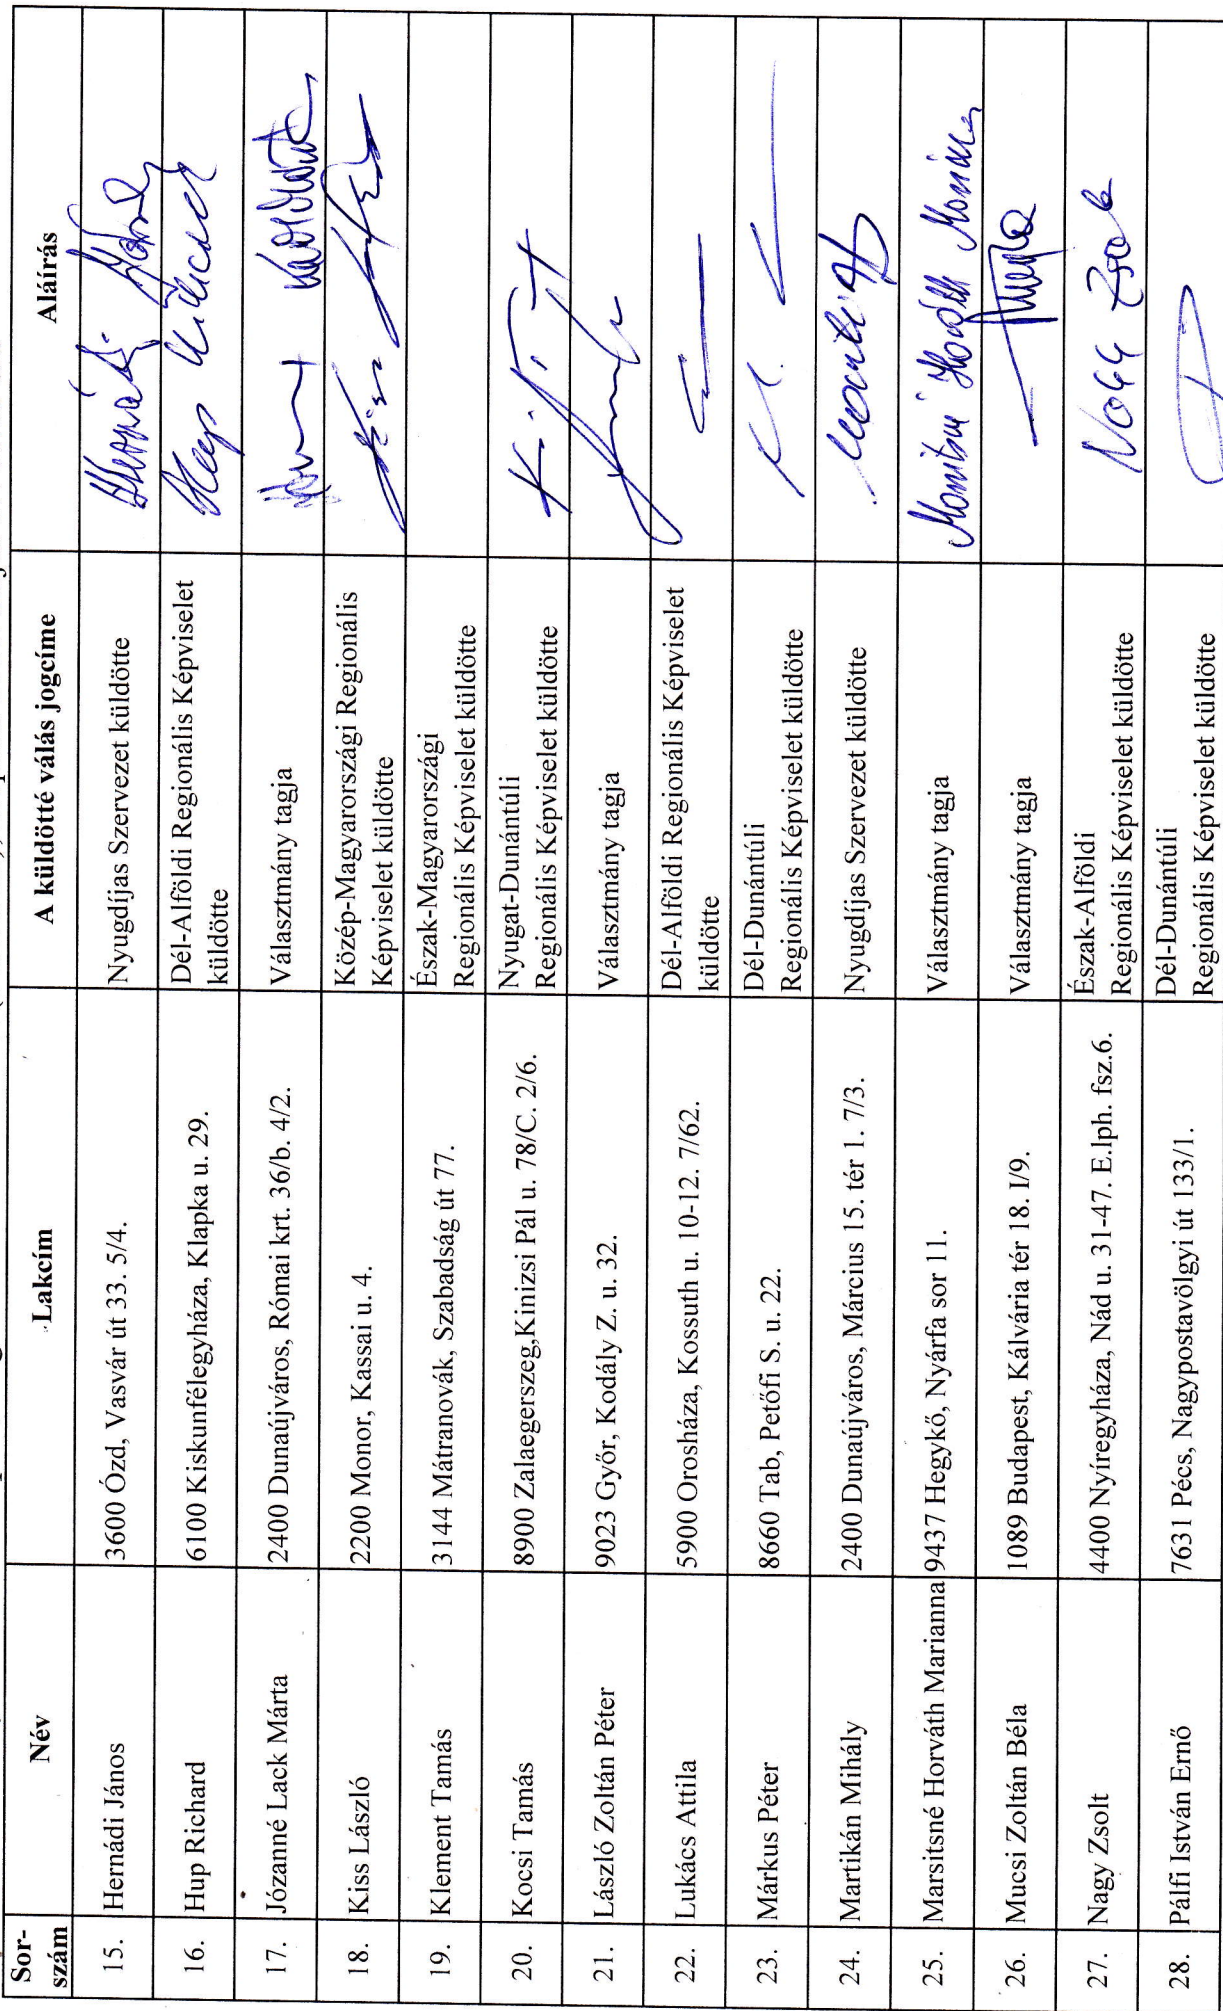 Sor-
szám
Név
Lakcím
A küldötté válás jogcíme
Aláírás
15.
Hernádi János
3600 Ózd, Vasvár út 33. 5/4.
Nyugdíjas Szervezet küldötte
16.
Hup Richard
6100 Kiskunfélegyháza, Klapka u. 29.
Dél-Alföldi Regionális Képviselet
küldötte
17.
Józanné Lack Márta
2400 Dunaújváros, Római krt. 36/b. 4/2.
Választmány tagja
18.
Kiss László
2200 Monor, Kassai u. 4.
Közép-Magyarországi Regionális
Képviselet küldötte
19.
Klement Tamás
3144 Mátranovák, Szabadság út 77.
Észak-Magyarországi
Regionális Képviselet küldötte
20.
Kocsi Tamás
8900 Zalaegerszeg,Kinizsi Pál u. 78/C. 2/6.
Nyugat-Dunántúli
Regionális Képviselet küldötte
21.
László Zoltán Péter
9023 Győr, Kodály Z. u. 32.
Választmány tagja
22.
Lukács Attila
5900 Orosháza, Kossuth u. 10-12. 7/62.
Dél-Alföldi Regionális Képviselet
küldötte
23.
Márkus Péter
8660 Tab, Petőfi S. u. 22.
Dél-Dunántúli
Regionális Képviselet küldötte
24.
Martikán Mihály
2400 Dunaújváros, Március 15. tér 1. 7/3.
Nyugdíjas Szervezet küldötte
25.
Marsitsné Horváth Marianna
9437 Hegykő, Nyárfa sor 11.
Választmány tagja
26.
Mucsi Zoltán Béla
1089 Budapest, Kálvária tér 18. I/9.
Választmány tagja
27.
Nagy Zsolt
4400 Nyíregyháza, Nád u. 31-47. E.lph. fsz.6.
Észak-Alföldi
Regionális Képviselet küldötte
28.
Pálfi István Ernő
7631 Pécs, Nagypostavölgyi út 133/1.
Dél-Dunántúli
Regionális Képviselet küldötte